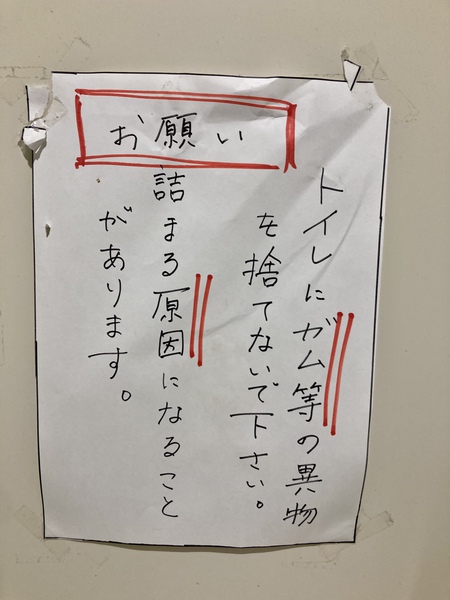 お願い
トイレにガム等の異物
を捨てないで下さい。
詰まる原因になること
があります。